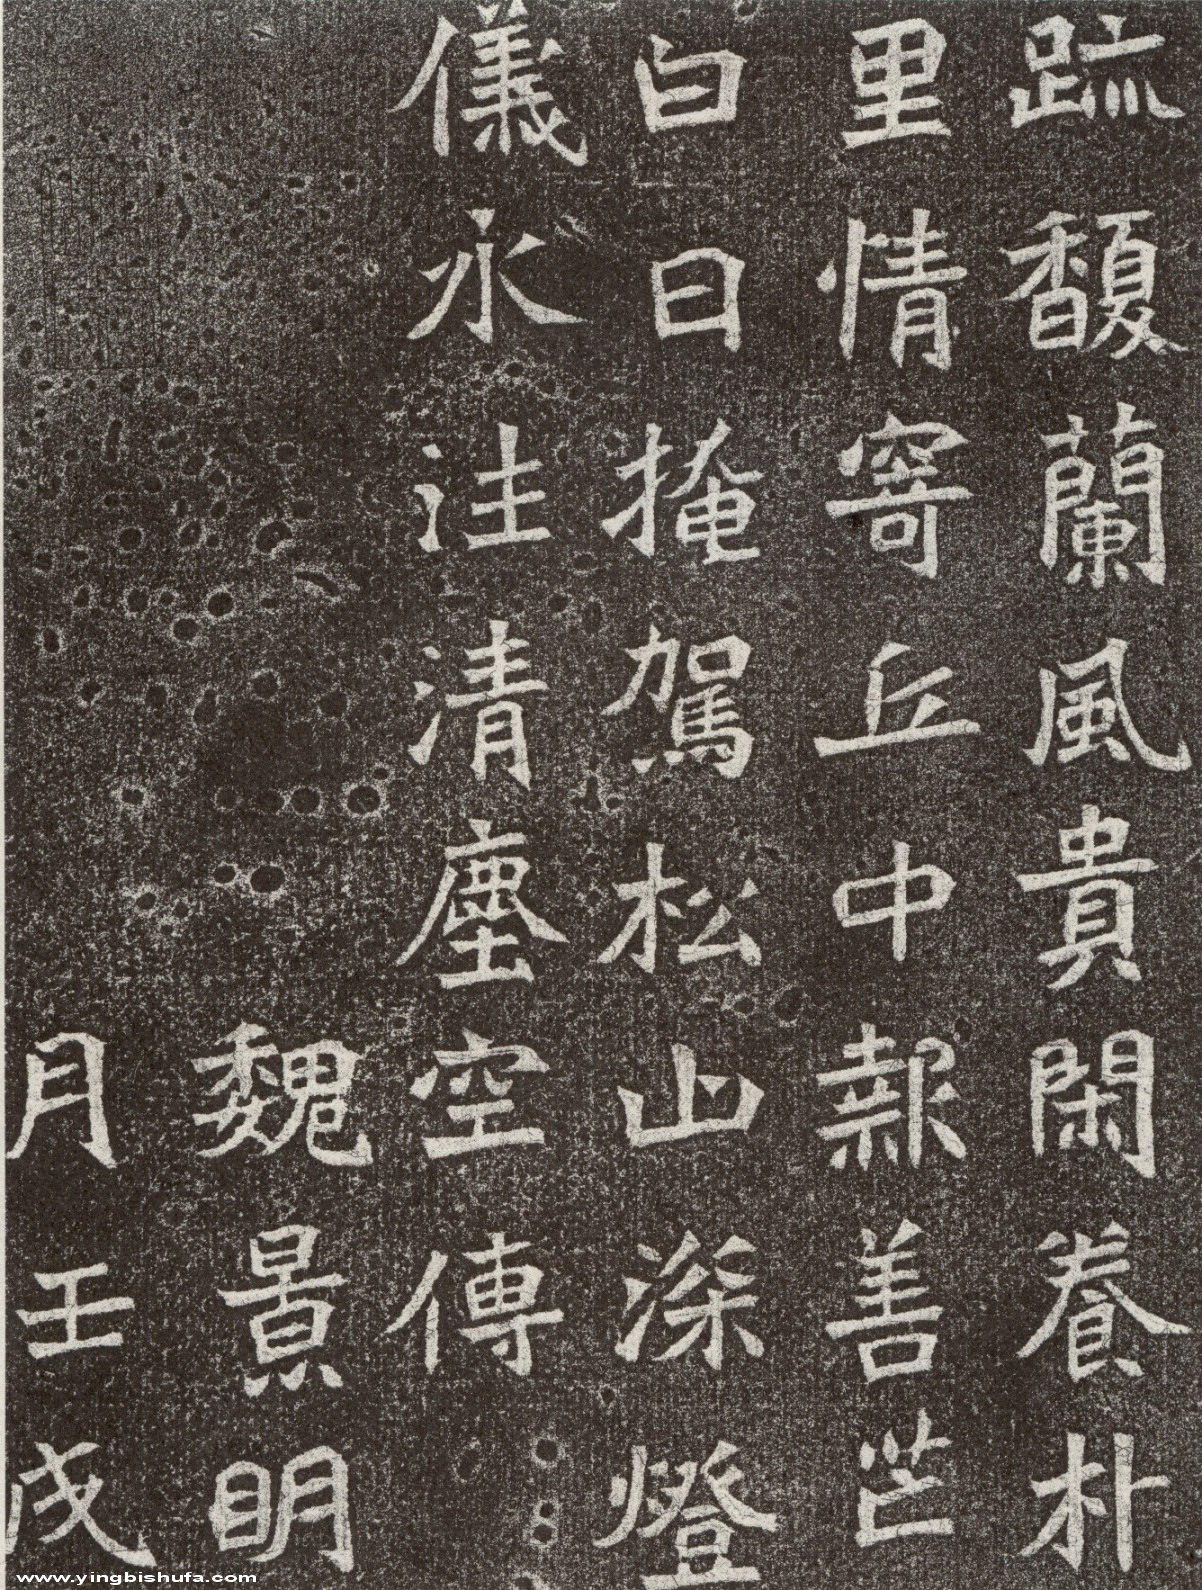 䟽馥蘭風貴閑養朴
里情寄丘中報善芒
白日掩駕松山深燈
儀永注清塵空傳
魏景明
月壬戌
www.yingbishufa.com